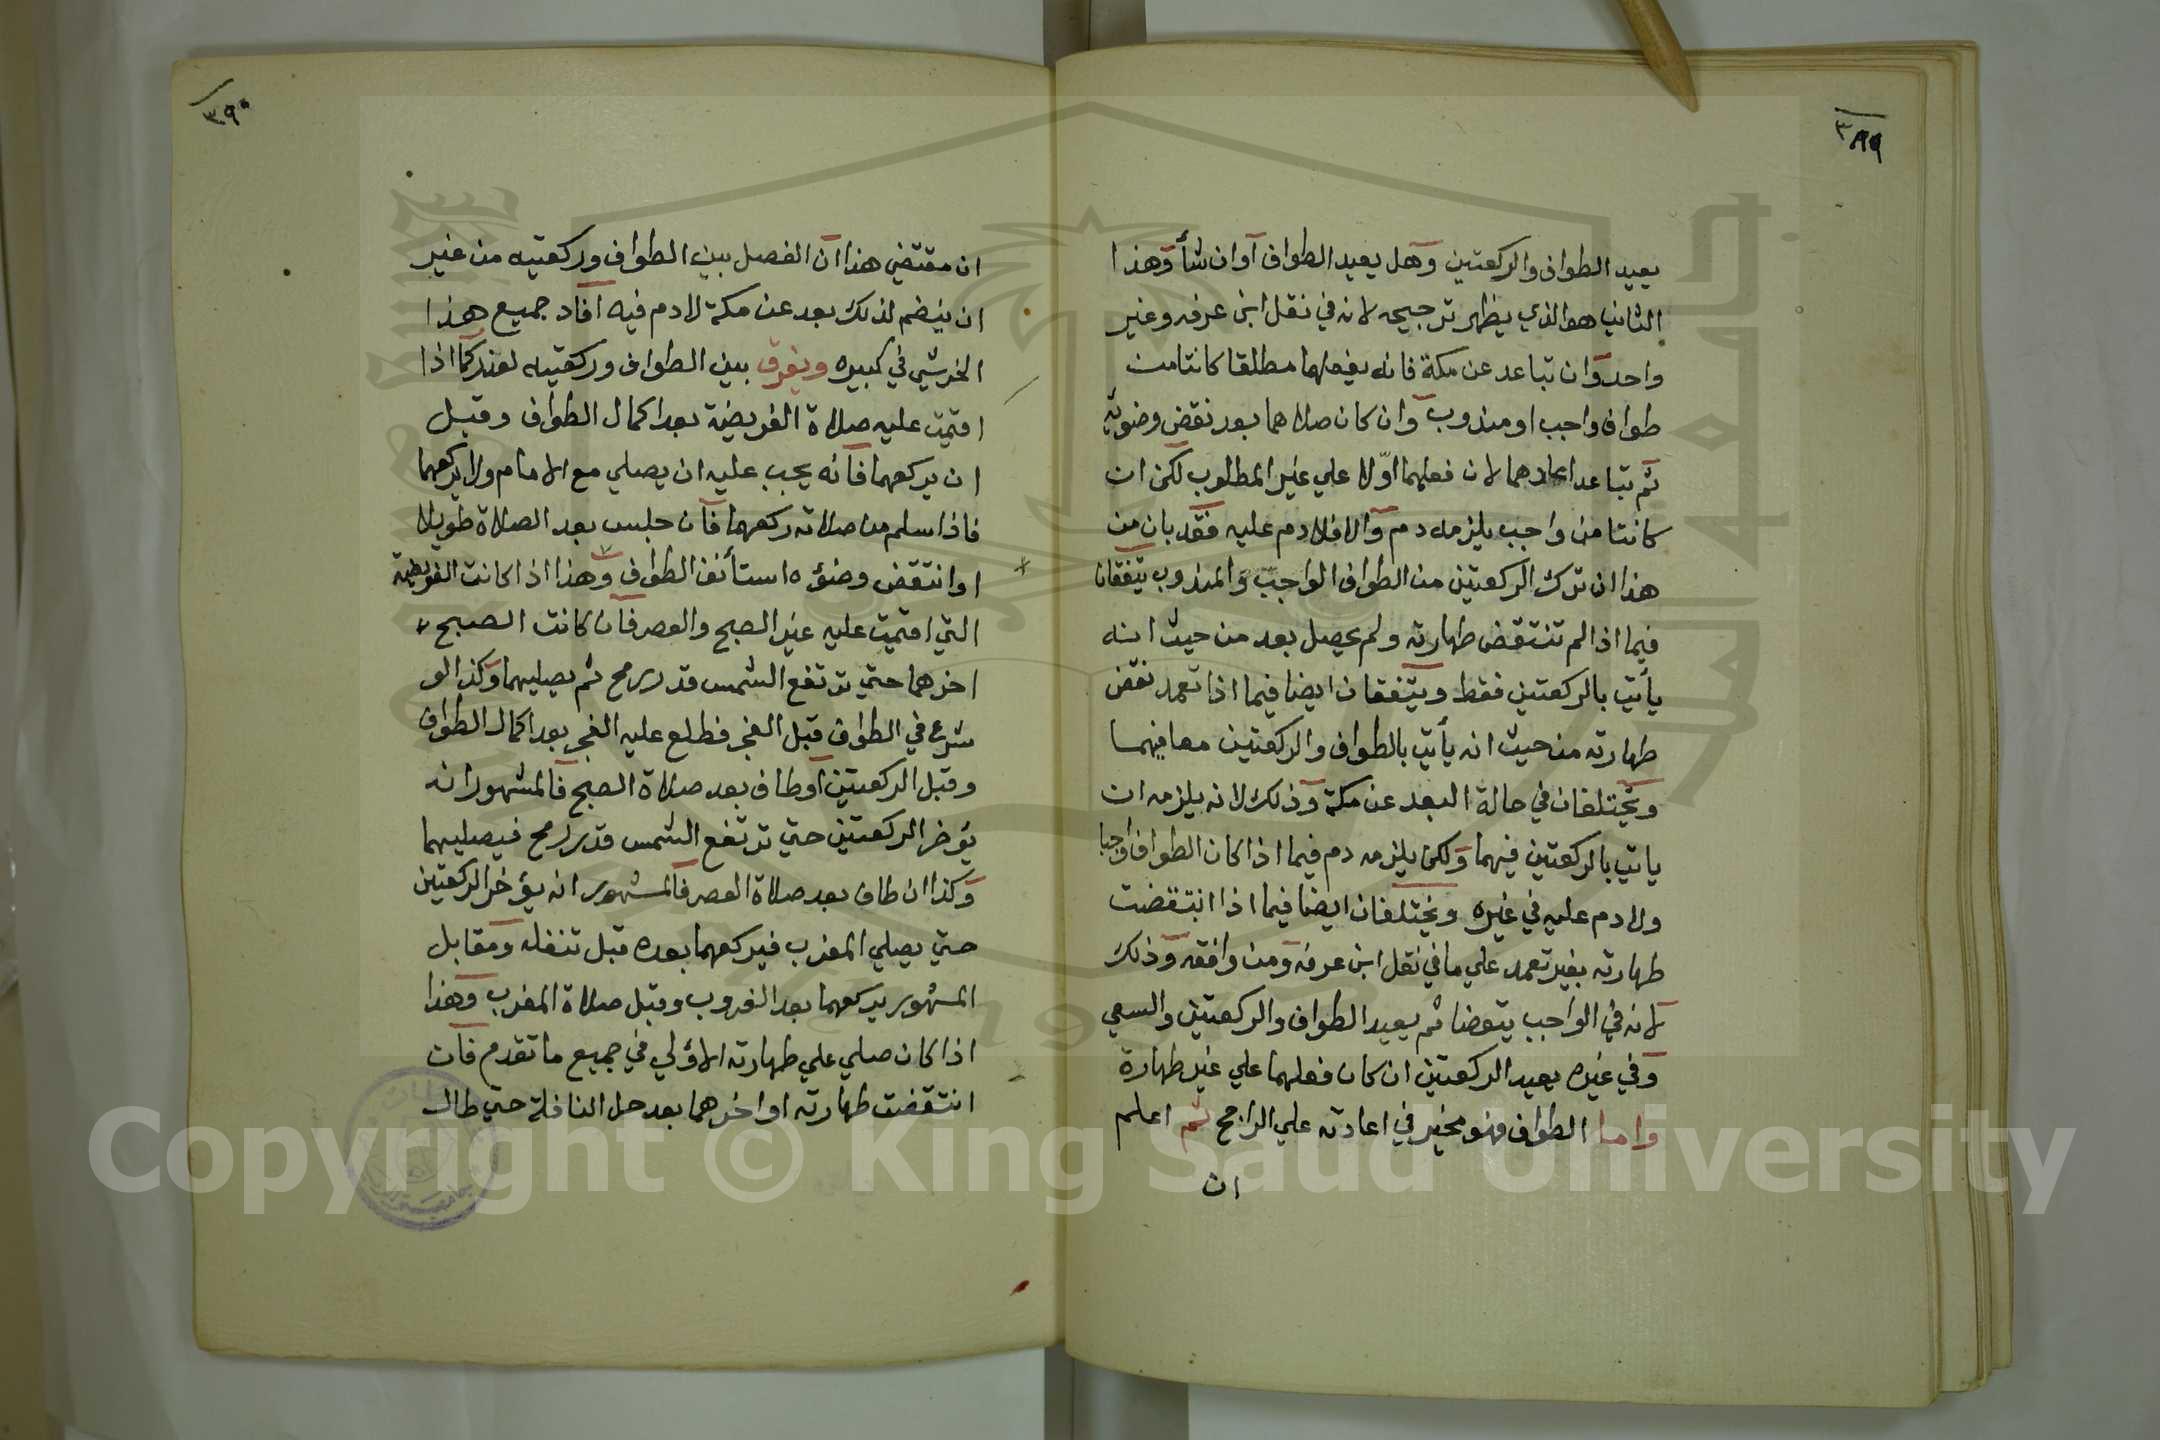 ٣٨٩
يعيد الطواف والركعتين وهل يعيد الطواف أو ان شأ وهذا
الثاني هو الذي يظهر ترجيحه لانه في نقل ابن عرفه وغير
واحد وان تباعد عن مكة فانه يفعلهما مطلقا كانتا من
طواف واجب او مندوب وان كان صلاهما بعد نقض وضوئه
ثم تباعد اعادهما لان فعلهما اوّلا علي غير المطلوب لكن ان
كانتا من واجب يلزمه دم والا فلا دم عليه فقد بان من
هذا ان ترك الركعتين من الطواف الواجب والمندوب يتفقان
فيما اذا لم تنتقض طهارته ولم يحصل بعد من حيث انه
يأتي بالركعتين فقط ويتفقان ايضا فيما اذا تعمد نقض
طهارته من حيث انه يأتي بالطواف والركعتين معا فيهما
ويختلفان في حالة البعد عن مكة وذلك لانه يلزمه ان
ياتي بالركعتين فيهما ولكن يلزمه دم فيما اذا كان الطواف واجبا
ولا دم عليه في غيره ويختلفان ايضا فيما اذا انتقضت
طهارته بغير تعمد علي ما في نقل ابن عرفه ومن وافقه وذلك
لانه في الواجب يتوضا ثم يعيد الطواف والركعتين والسعي
وفي غيره يعيد الركعتين ان كان فعلهما علي غير طهارة
واما الطواف فهو مخير في اعادته علي الراجح ثم اعلم
ان
٣٩٠
ان مقتضي هذا ان الفصل بين الطواف وركعتيه من غير
ان ينضم لذلك بعد عن مكة لا دم فيه افاد جميع هذا
الخرشي في كبيره ويفرق بين الطواف وركعتيه لعذر كما اذا
اقيمت عليه صلاة الفريضة بعد اكمال الطواف وقبل
ان يركعهما فانه يجب عليه ان يصلي مع الامام ولا يركعهما
فاذا سلم من صلاته ركعهما فان جلس بعد الصلاة طويلا
او انتقض وضؤه استأنف الطواف وهذا اذا كانت الفريضة
التي اقيمت عليه غير الصبح والعصر فان كانت الصبح
اخرهما حتي ترتفع الشمس قدر رمح ثم يصليهما وكذا لو
شرع في الطواف قبل الفجر فطلع عليه الفجر بعد اكمال الطواف
وقبل الركعتين او طاف بعد صلاة الصبح فالمشهور انه
يؤخر الركعتين حتي ترتفع الشمس قدر رمح فيصليهما
وكذا ان طاف بعد صلاة العصر فالمشهور انه يؤخر الركعتين
حتي يصلي المغرب فيركعهما بعده قبل تنفله ومقابل
المشهور يركعهما بعد الغروب وقبل صلاة المغرب وهذا
اذا كان صلي علي طهارته الاؤلي في جميع ما تقدم فان
انتقضت طهارته او اخرهما بعد حل النافلة حتي طال
Copyright © King Saud University